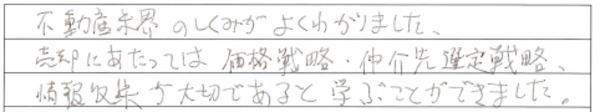 不動産業界のしくみがよくわかりました、
売却にあたっては価格戦略・仲介先選定戦略、
情報収集が大切であると学ぶことができました。